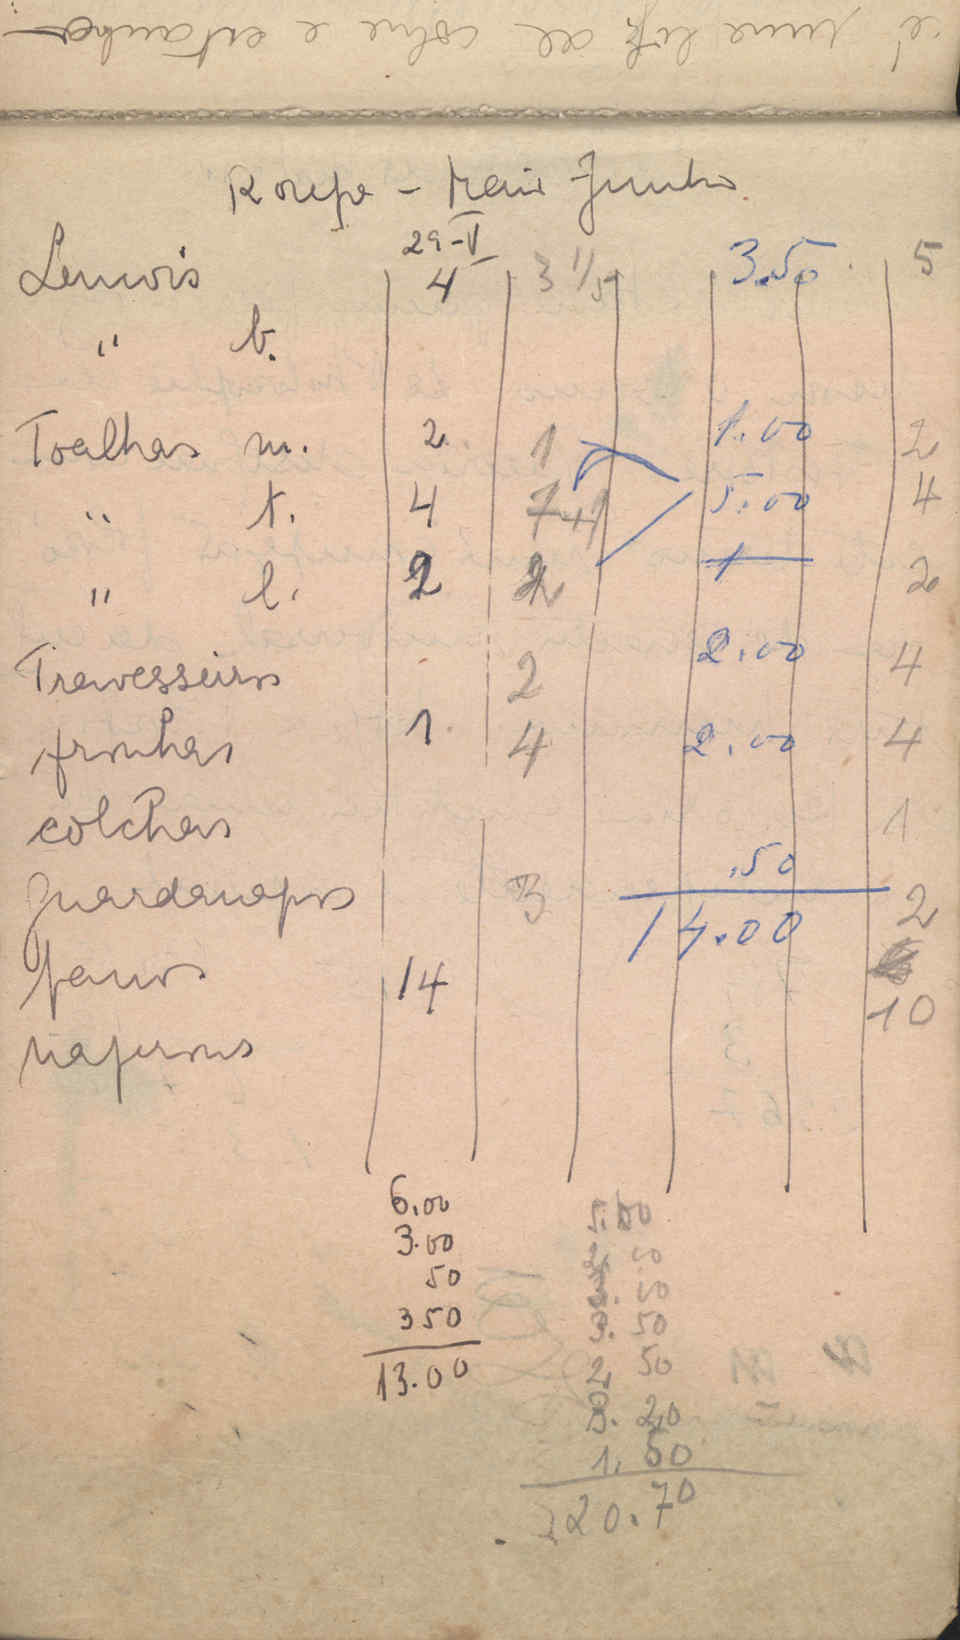 Roupa - Maio Junho
29-V
Lencois 4 3 1/5 3.50 5
" b.
Toalhas m. 2 1 1.00 2
" t. 4 7+1 5.00 4
" l. 2 2 1 2
Travesseiros 2 2.00 4
fronhas 1. 4 2.00 4
colchas 1
.50
guardanapos 3 2
14.00
panos 14
10
6.00
3.00
50
350
13.00
50
50
2 50
3. 20
1.50
20.70